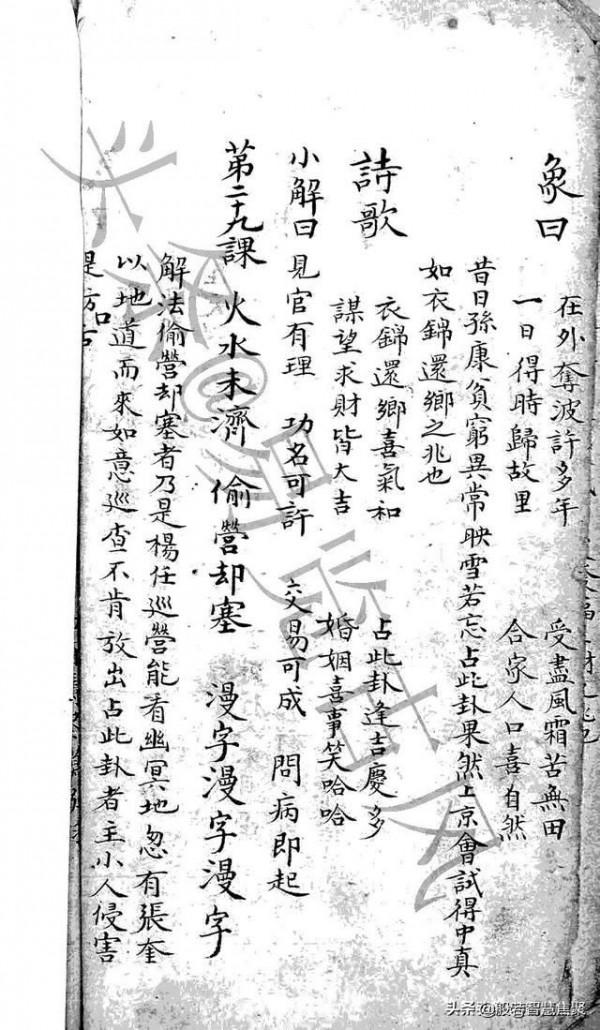 象曰
在外奪波許多年 受盡風霜苦無田
一日得時歸故里 合家人口喜自然
昔日孫康貧窮異常映雪若忘占此卦果然上京會試得中真
如衣錦還鄉之兆也
詩歌
衣錦還鄉喜氣和 占此卦逢吉慶多
謀望求財皆大吉 婚姻喜事笑哈哈
小解曰見官有理 功名可許 交易可成 問病即起
第二十九課 火水未濟 偷營却塞 漫字漫字漫字
解法偷營却塞者乃是楊任巡營能看幽冥地忽有張奎
以地道而來如意巡查不肯放出占此卦者主小人侵害
是防口
头条@
头条@般若智慧焦聚